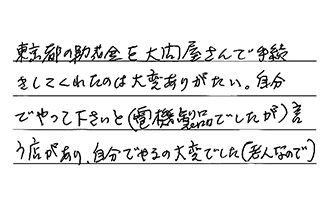 東京都の助成金を大内屋さんで手続
きをしてくれたのは大変ありがたい。自分
でやって下さいと(電機製品でしたが)言
う店があり、自分でやるの大変でした(老人なので)